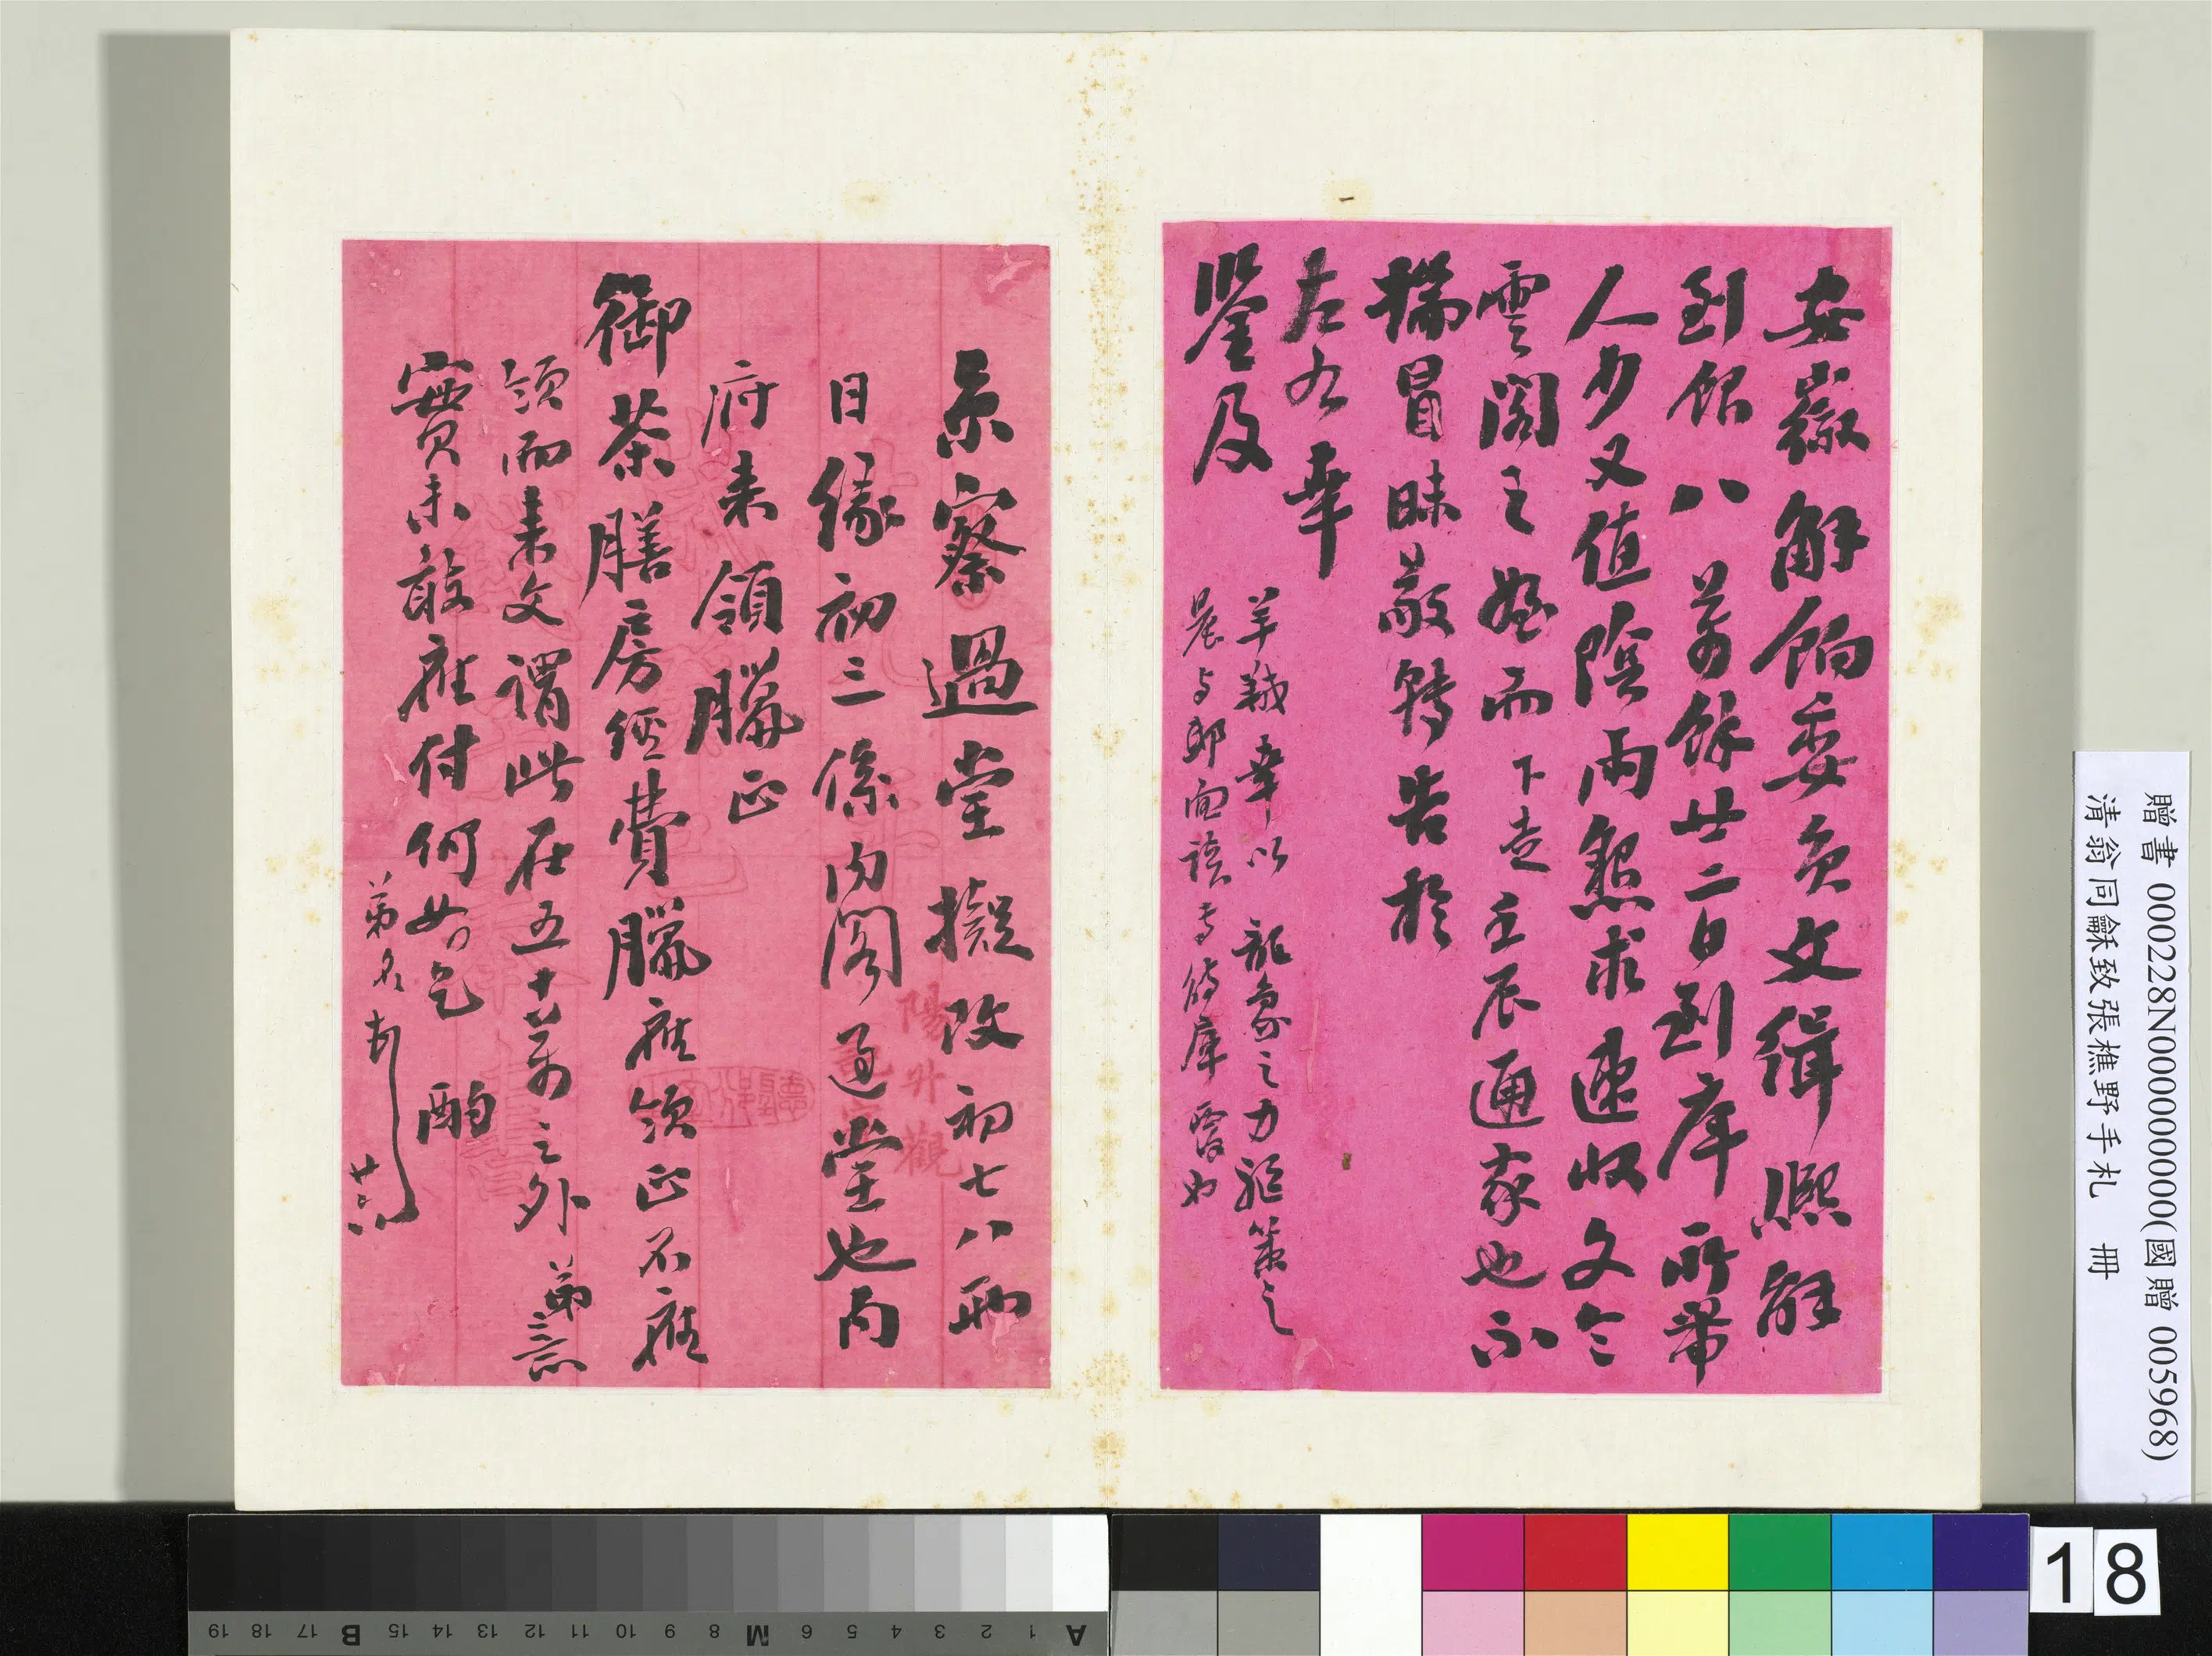 安徽解餉委員文緝熙解
到銀八萬餘廿二日到庫所帶
人少又值陰雨懇求速收文令
雲閣之姪而下走壬辰通家也不
揣冒昧敬轉告於
左右幸
鑒及
羊裘幸以龍象之力驅策之
晨与郎面談專待庫
京察過堂擬改初七八兩
日緣初三係內閣過堂也內
府來領臘正
御茶膳房經費臘應領正不應
領而來文謂此在五十萬之外弟意
實未敢應付何如乞酌
弟名頓首
廿六
陽
觀
贈書 000228N000000000(國贈 005968)
清翁同龢致張樵野手札 冊
18
A 1 2 3 4 5 6 M 8 9 10 11 12 13 14 15 B 17 18 19